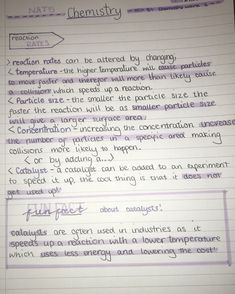 NATS
Chemistry
reaction
RATES
> reaction rates can be altered by changing,
< Temperature - the higher temperature will cause particles
to move faster and therefore will more than likely cause
a collision which speeds up a reaction.
< Particle size - the smaller the particle size the
faster the reaction will be as smaller particle size
will give a larger surface area.
< Concentration - increasing the concentration increase
the number of particles in a specific area making
collisions more likely to happen.
< or by adding a...)
< Catalyst - a catalyst can be added to an experiment
to speed it up, the cool thing is that it does not
get used up!
FUN FACT about catalysts!
catalysts are often used in industries as it
speeds up a reaction with a lower temperature
which uses less energy and lowering the cost!